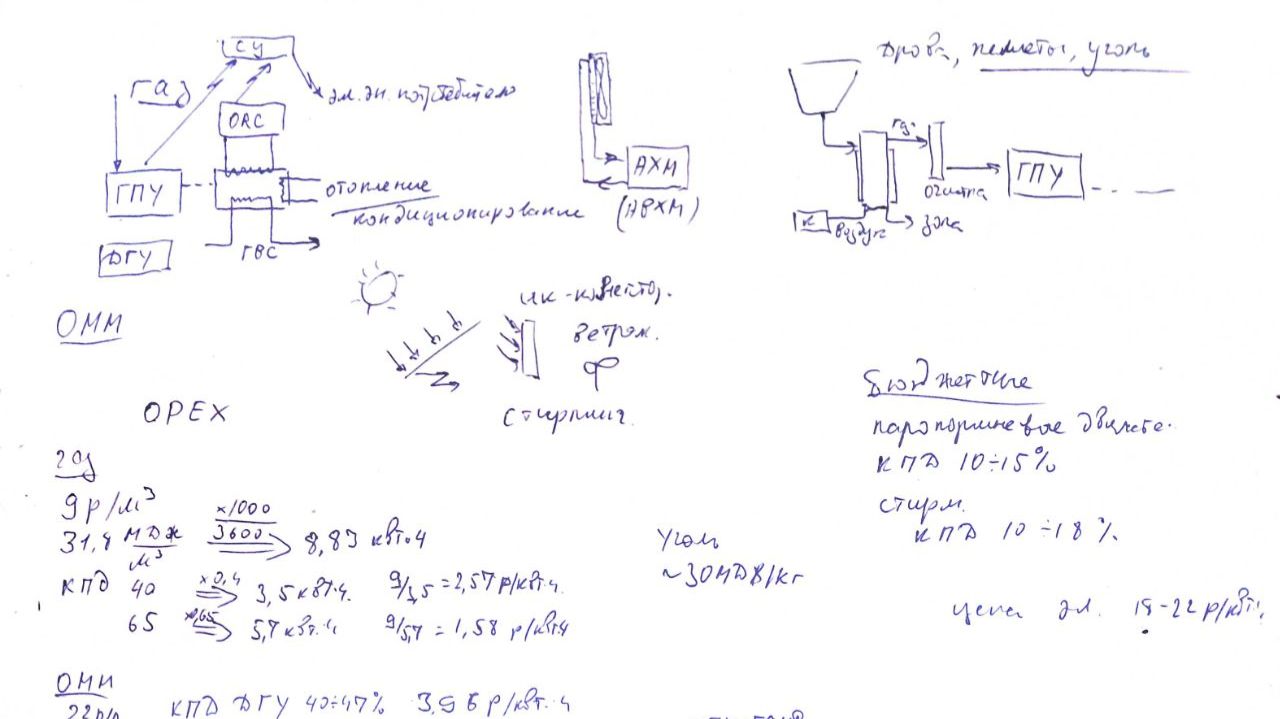 СУ
газ
эл. эн. потребителю
ORC
ГПУ
отопление
кондиционирование
ГВС
ДГУ
АХМ
(АВХМ)
Дрова, пеллеты, уголь
газ
ГПУ
очистка
К
воздух
зола
ОММ
ик-коллектор.
ветрог.
Стирлинг.
OPEX
Бюджетные
паропоршневые двигате.
КПД 10÷15%
стирл.
КПД 10÷18%
цена эл. 18-22 р/квт.ч
газ
9р/м³
31,8 МДж/м³ ×1000/3600 8,83 квт.ч
КПД 40 ×0,4 3,5 квт.ч. 9/3,5=2,57 р/квт.ч.
65 ×0,65 5,7 квт.ч 9/5,7 = 1,58 р/квт.ч
Уголь
~30МДж/кг
ОММ
КПД ДГУ 40÷47% 3,96 р/квт.ч